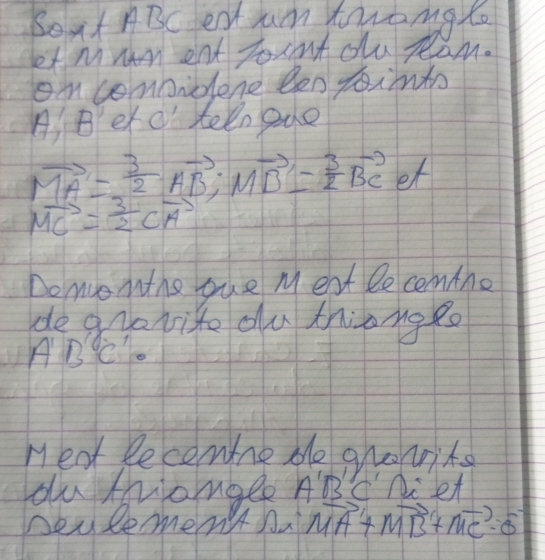 Soit ABC est un triangle
et M un est point du plan.
on considere les points
A', B' et C' tels que
MA' = 3/2 AB ; MB' = 3/2 BC et
MC' = 3/2 CA
Demontre que M est le centre
de gravite du triangle
A'B'C'.
M est le centre de gravite
du triangle A'B'C' si et
seulement si MA' + MB' + MC' = 0